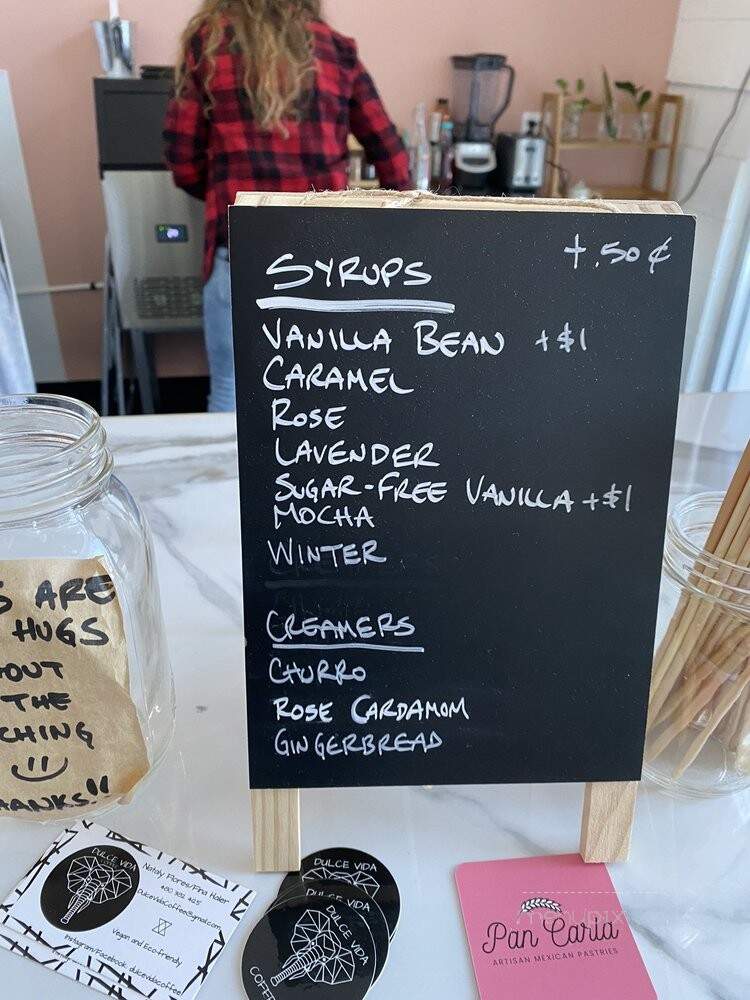 SYRUPS +.50¢
VANILLA BEAN +$1
CARAMEL
ROSE
LAVENDER
SUGAR-FREE VANILLA +$1
MOCHA
WINTER
CREAMERS
CHURRO
ROSE CARDAMOM
GINGERBREAD
S ARE
HUGS
OUT
THE
CHING
HANKS!!
DULCE VIDA
Nataly Flores/Fina Haler
DulceVidaCoffee@gmail.com
Vegan and Eco-friendly
Instagram/Facebook: dulcevidacoffee
DULCE VIDA
DULCE VIDA
DULCE VIDA
COFFEE
menupix
Pan Carla
ARTISAN MEXICAN PASTRIES